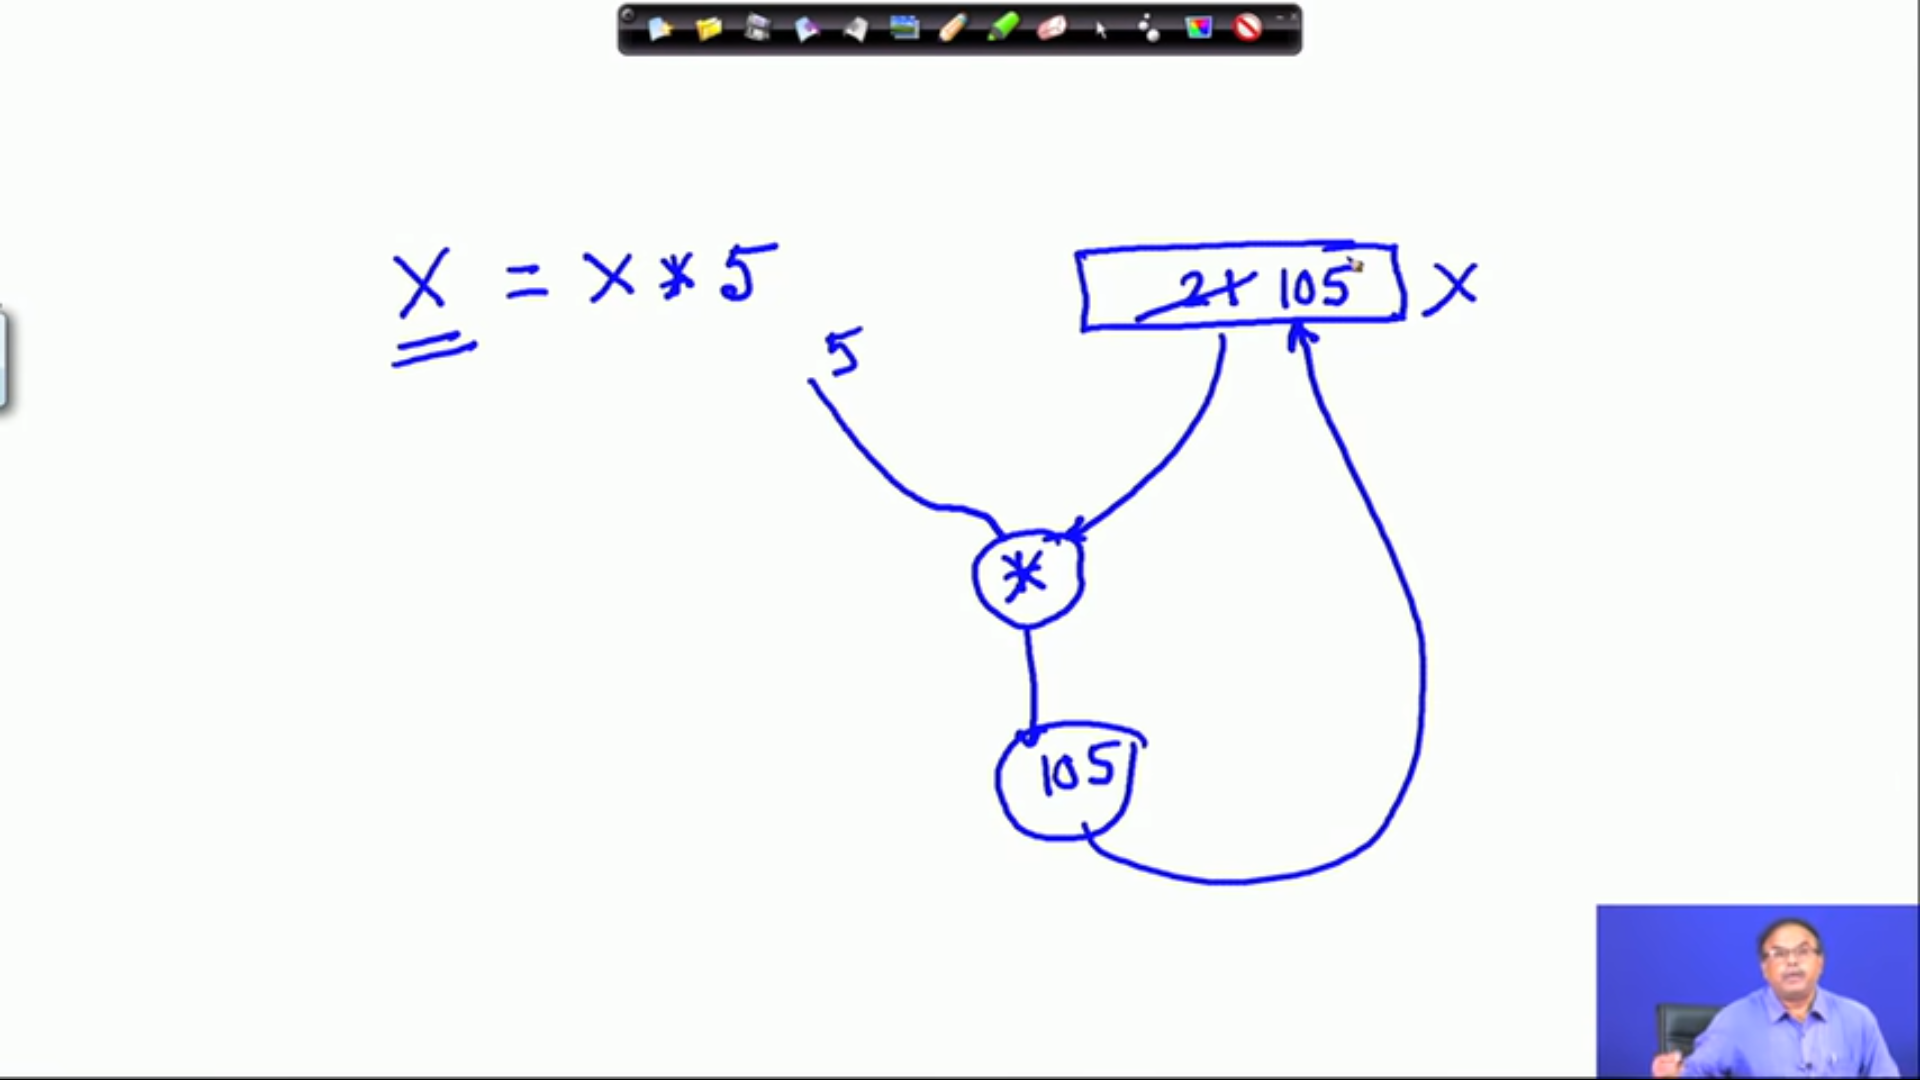 X = X * 5
21 105 X
5
*
105